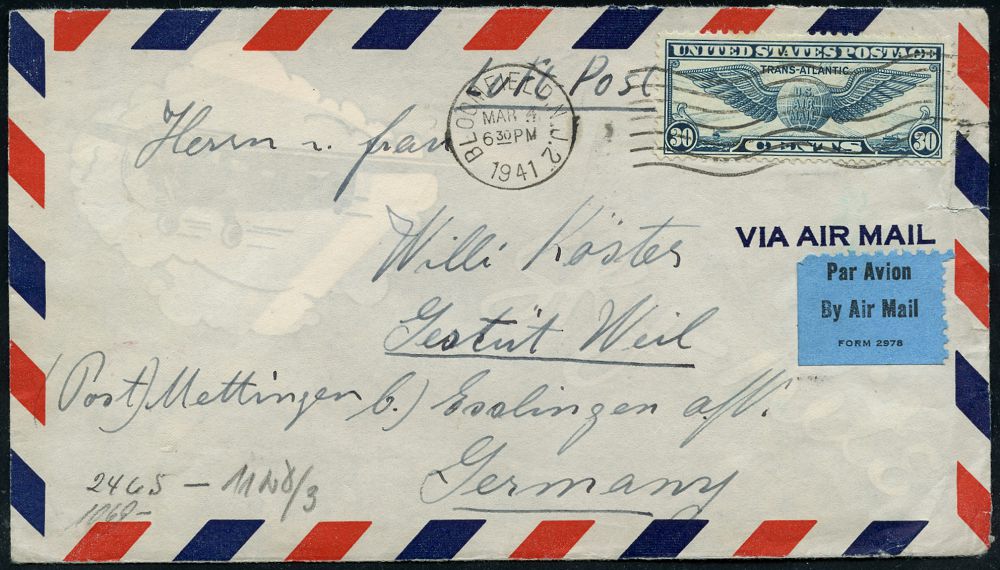 UNITED STATES POSTAGE
TRANS-ATLANTIC
U.S.
AIR
MAIL
30 CENTS 30
Luft Post
BLOOMFIELD, N.J. 2
MAR 4
6 30 PM
1941
Herrn u. frau
Willi Köster
VIA AIR MAIL
Par Avion
By Air Mail
FORM 2978
Gestüt Weil
(Post) Mettingen b.) Esslingen a/N.
Germany
2465 –